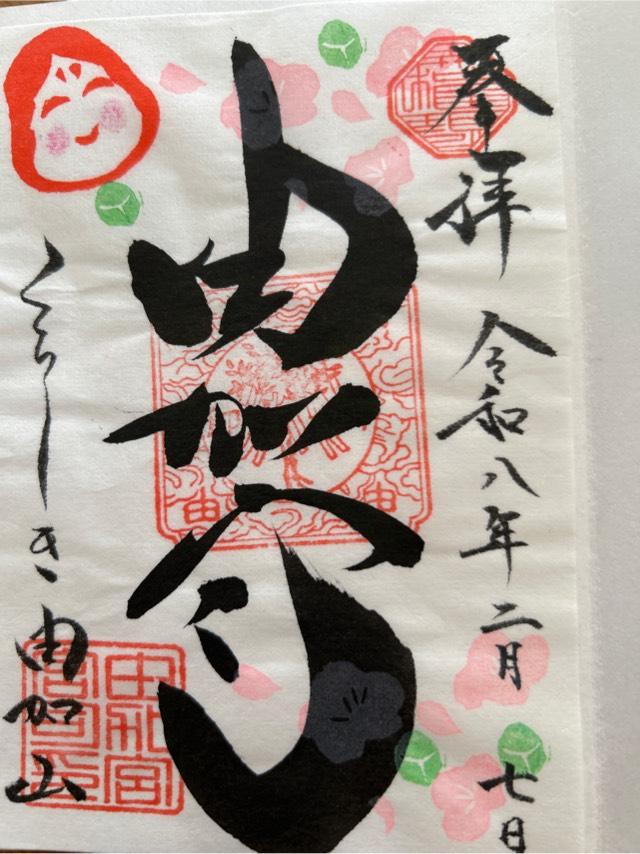 奉拝 令和八年二月七日
由加宮
くらしき 由加山
由
由